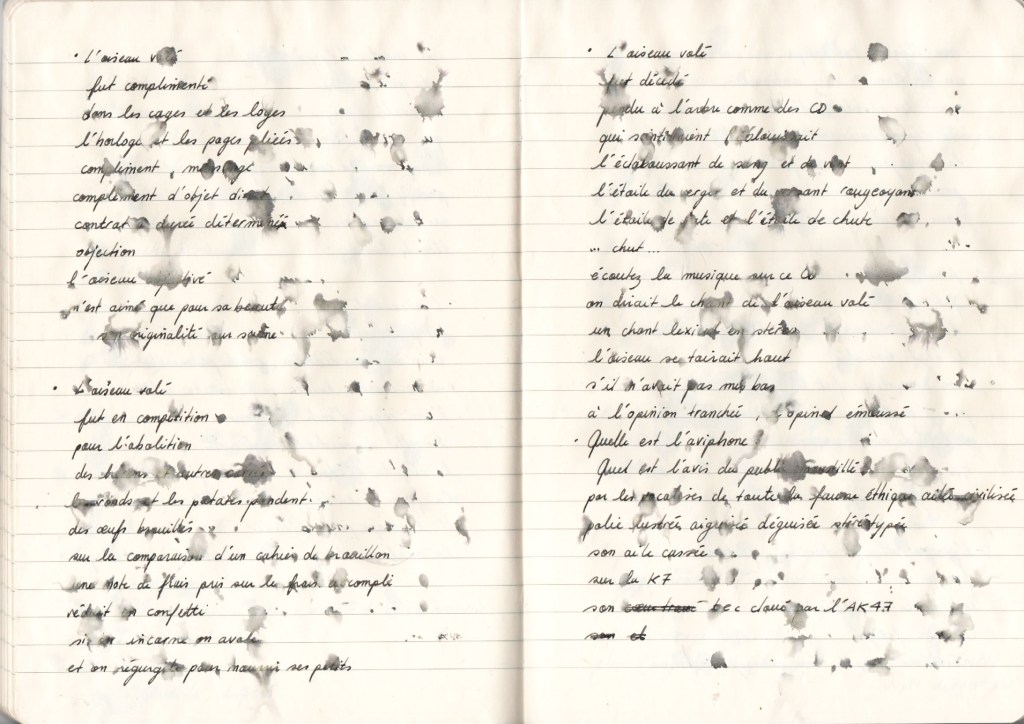 • L'oiseau volé
fut complimenté
dans les cages et les loges
l'horloge et les pages pliées
compliment, mensonge
complément d'objet direct
contrat à durée déterminée
objection
l'oiseau
n'est aimé que pour sa beauté
son originalité sur scène
• L'oiseau volé
fut en compétition
pour l'abolition
des
les ronds et les patates pendent.
des œufs brouillés
sur la comparaison d'un cahier de brouillon
une note de frais pris sur le frais accompli
réduit en confetti
si on incarne on avale
et on régurgite pour nourrir ses petits
• L'oiseau volé
fut décédé
pendu à l'arbre comme des CD
qui l'éblouissait
l'éclaboussant de sang et de vent
l'étoile du verger et du versant rougeoyant
l'étoile de et l'étoile de chute
... chut...
écoutez la musique sur ce CD
on dirait le chant de l'oiseau volé
un chant lexical en stéréo
l'oiseau se tairait haut
s'il n'avait pas mis bas
à l'opinion tranchée, l'opinel émoussé
• Quelle est l'aviphone ?
Quel est l'avis du public
par les vocalises de toute la faune éthique ailée civilisée
polie lustrée aiguisée déguisée stéréotypée
son aile cassée
sur la K7
son bec cloué par l'AK47
son et